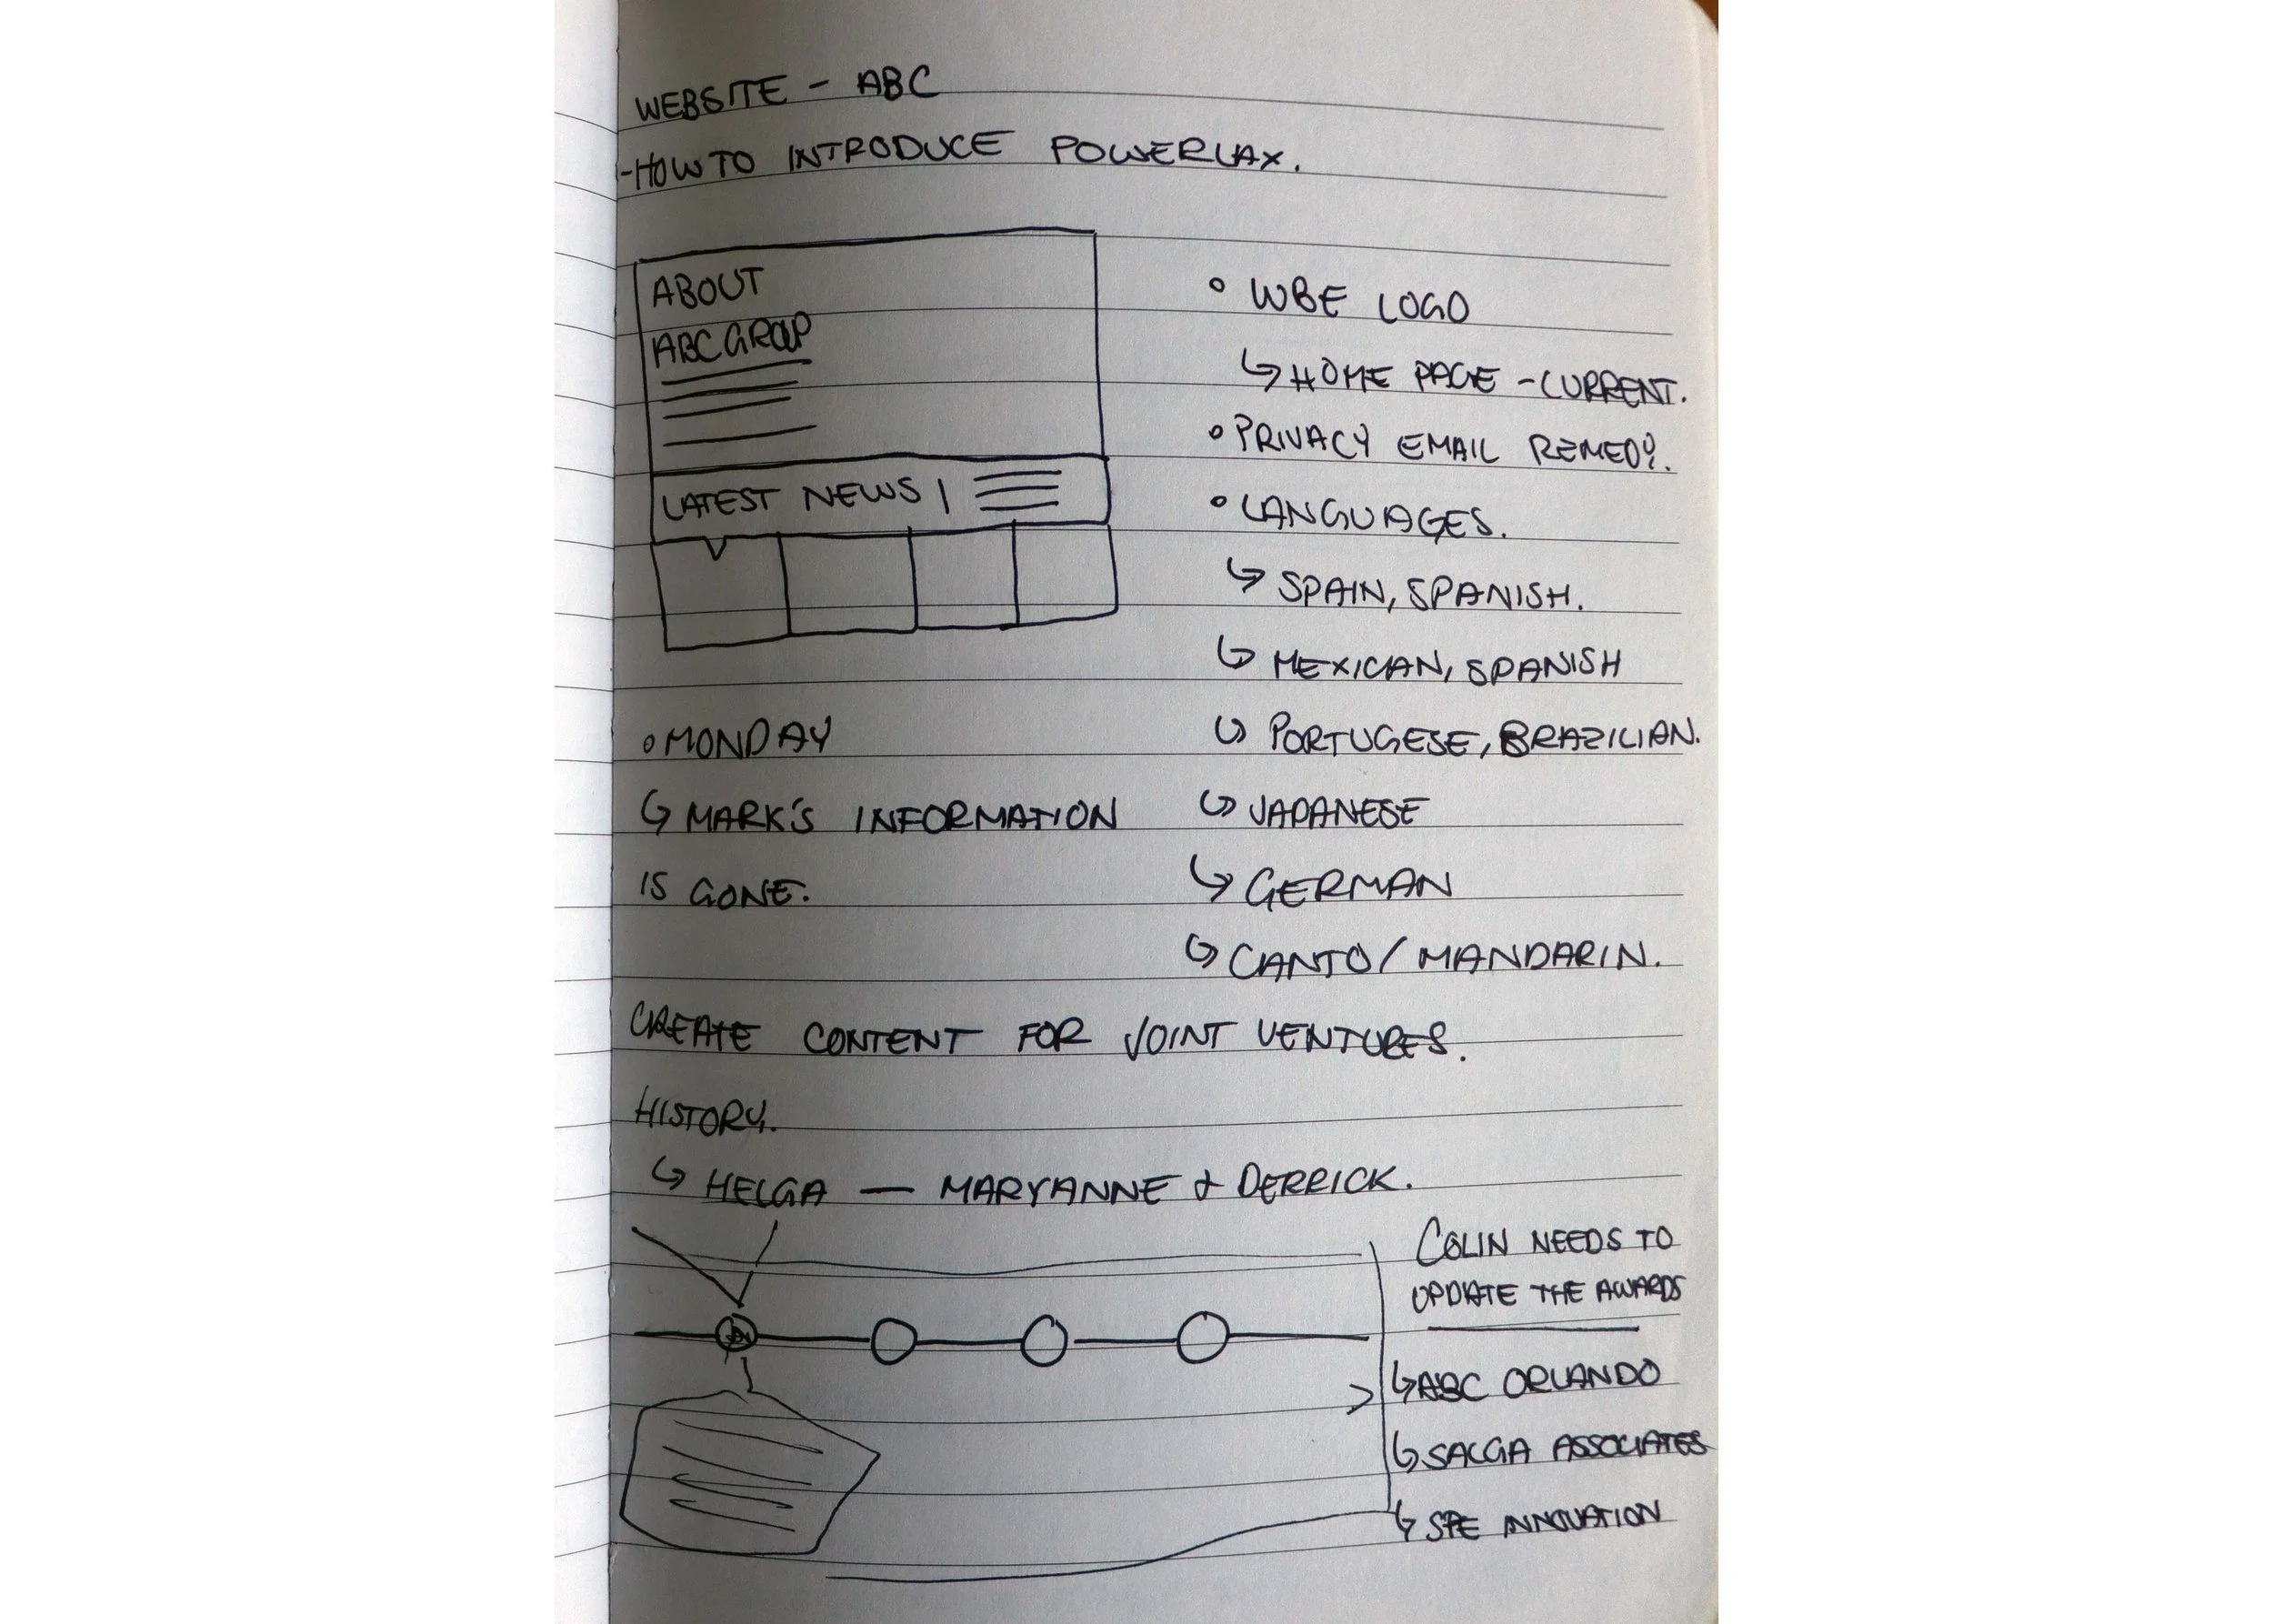 WEBSITE - ABC
-HOW TO INTRODUCE POWERLAX.
ABOUT
ABC GROUP
LATEST NEWS |
• WBE LOGO
↳ HOME PAGE - CURRENT.
• PRIVACY EMAIL REMEDY.
• LANGUAGES.
↳ SPAIN, SPANISH.
↳ MEXICAN, SPANISH
↳ PORTUGESE, BRAZILIAN.
↳ JAPANESE
↳ GERMAN
↳ CANTO / MANDARIN.
• MONDAY
↳ MARK'S INFORMATION
IS GONE.
CREATE CONTENT FOR JOINT VENTURES.
HISTORY.
↳ HELGA — MARYANNE & DERRICK.
COLIN NEEDS TO
UPDATE THE AWARDS
↳ ABC ORLANDO
↳ SACGA ASSOCIATES
↳ SPE INNOVATION